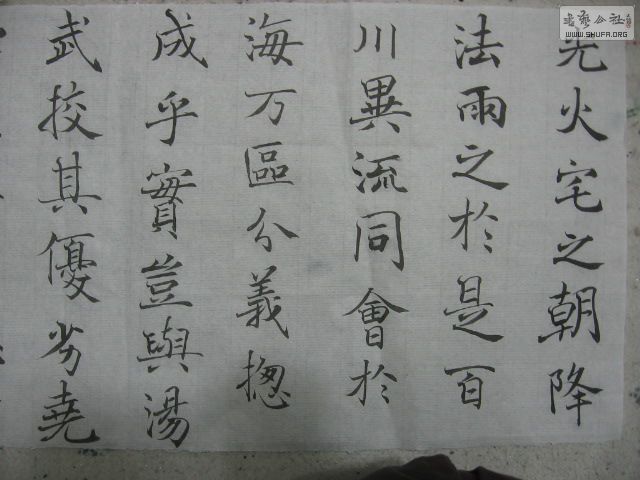 光火宅之朝降
法雨之於是百
川異流同會於
海万區分義揔
成乎實豈與湯
武挍其優劣堯
書藝公社
WWW.SHUFA.ORG